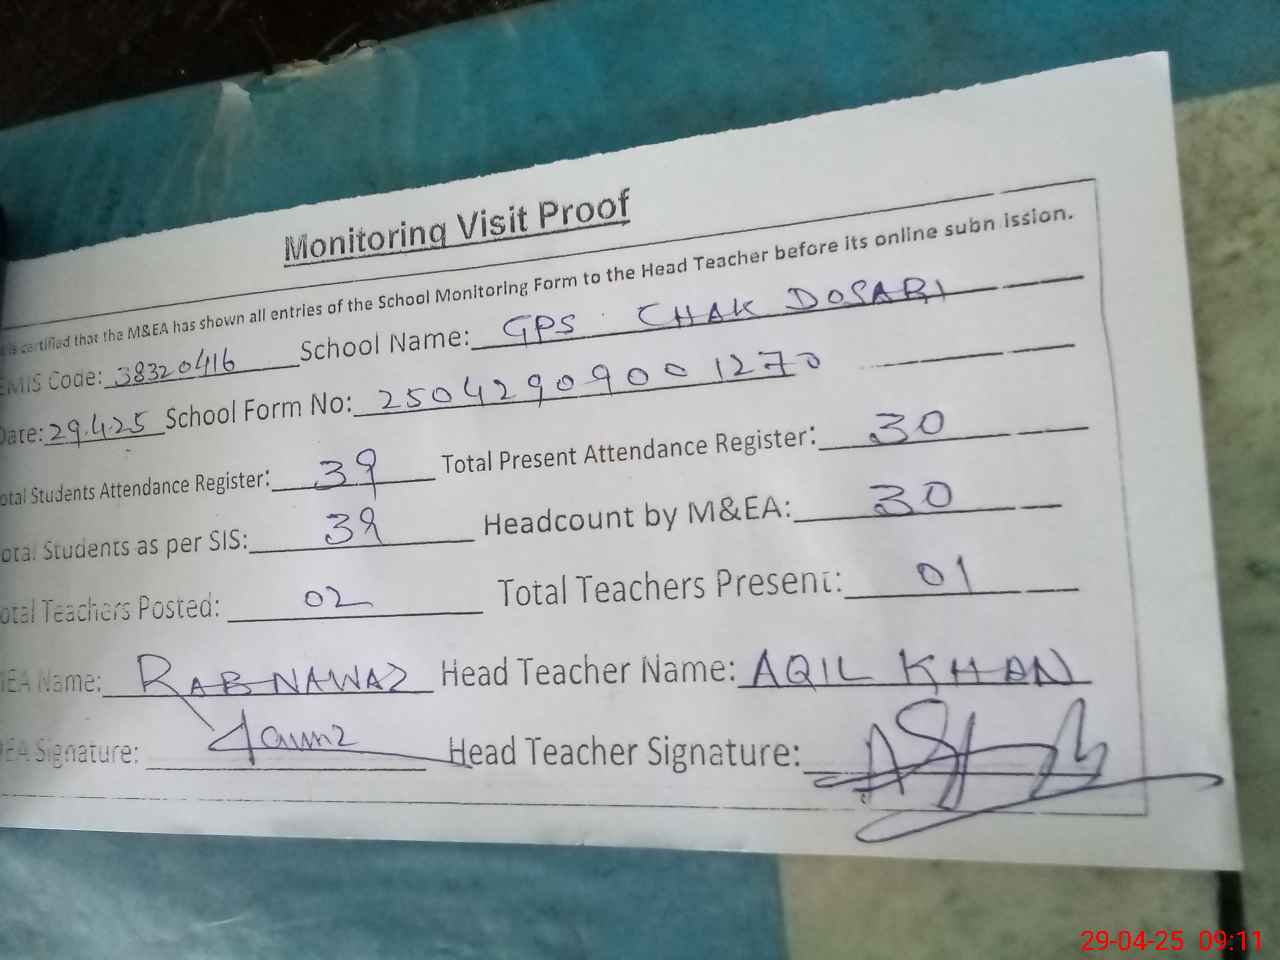 Monitoring Visit Proof
is certified that the M&EA has shown all entries of the School Monitoring Form to the Head Teacher before its online subn ission.
EMIS Code: 38320416 School Name: GPS CHAK DOSARI
Date: 29.4.25 School Form No: 25042909001270
otal Students Attendance Register: 39 Total Present Attendance Register: 30
otal Students as per SIS: 39 Headcount by M&EA: 30
otal Teachers Posted: 02 Total Teachers Present: 01
EA Name: RAB NAWAZ Head Teacher Name: AQIL KHAN
EA Signature: Head Teacher Signature:
29-04-25 09:11